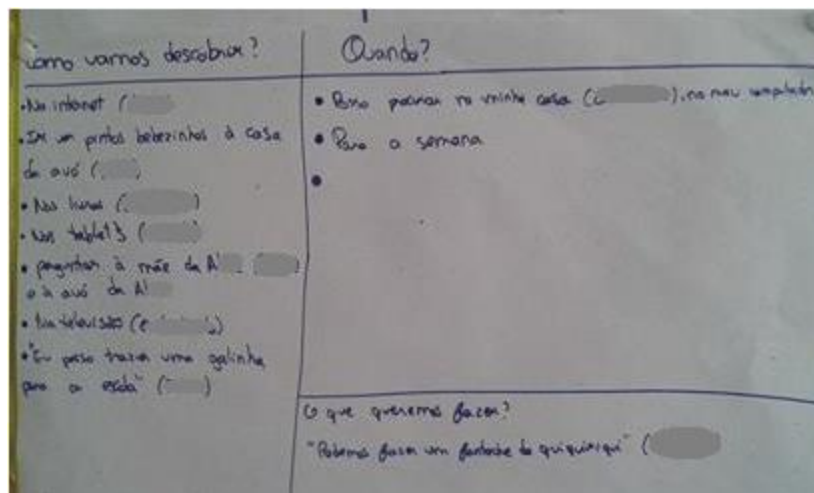 Como vamos descobrir?
• Na internet (
• Ir ver pintos bebezinhos à casa
da avó (    )
• Nos livros (    )
• Nos tablets (    )
• perguntar à mãe da A
e à avó da A
• Na televisão (    )
• "Eu posso trazer uma galinha
para a escola" (    )
Quando?
• Posso procurar na minha casa (    ), no meu computador
• Para a semana
•
O que queremos fazer?
"Podemos fazer um fantoche do quiquiriqui" (